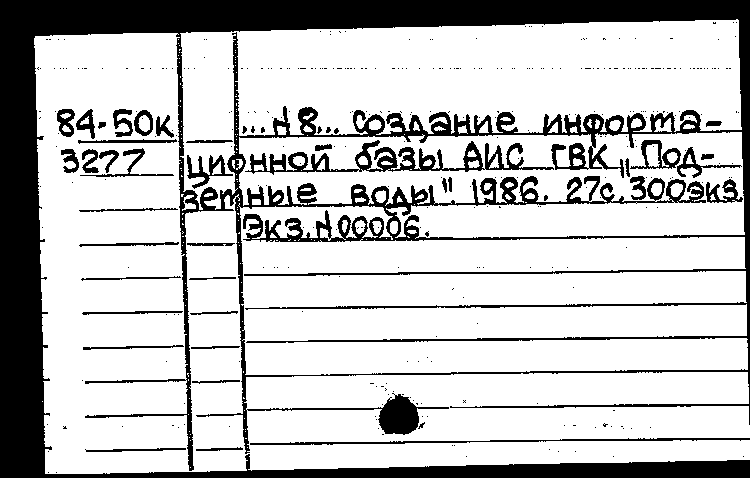 84-50к ...N8... Создание информа-
3277 ционной базы АИС ГВК „Под-
земные воды". 1986. 27с. 300экз.
Экз. N00006.